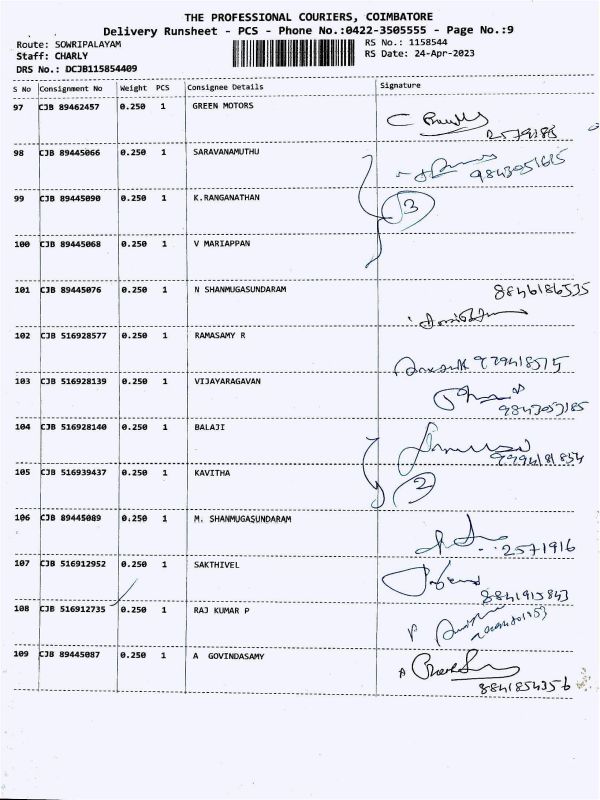 THE PROFESSIONAL COURIERS, COIMBATORE
Delivery Runsheet - PCS - Phone No.:0422-3505555 - Page No.:9
Route: SOWRIPALAYAM RS No.: 1158544
Staff: CHARLY RS Date: 24-Apr-2023
DRS No.: DCJB115854409
S No Consignment No Weight PCS Consignee Details Signature
97 CJB 89462457 0.250 1 GREEN MOTORS
98 CJB 89445066 0.250 1 SARAVANAMUTHU
99 CJB 89445090 0.250 1 K.RANGANATHAN
3
100 CJB 89445068 0.250 1 V MARIAPPAN
101 CJB 89445076 0.250 1 N SHANMUGASUNDARAM
8846186535
102 CJB 516928577 0.250 1 RAMASAMY R
103 CJB 516928139 0.250 1 VIJAYARAGAVAN
9843053185
104 CJB 516928140 0.250 1 BALAJI
9994181854
105 CJB 516939437 0.250 1 KAVITHA
2
106 CJB 89445089 0.250 1 M. SHANMUGASUNDARAM
2571916
107 CJB 516912952 0.250 1 SAKTHIVEL
8841915843
108 CJB 516912735 0.250 1 RAJ KUMAR P
109 CJB 89445087 0.250 1 A GOVINDASAMY
8841854356